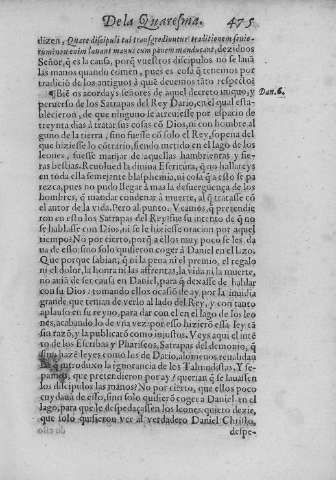 De la Quaresma. 475
dizen, Quare discipuli tui transgrediuntur traditionem senio-
rum: non enim lauant manus cum panem manducant, dezidnos
Señor, q̃ es la causa, porq̃ vuestros discipulos no se lauã
las manos quando comen, pues es cosa q̃ tenemos por
tradicio de los antiguos à quiẽ deuemos tãto respecto?
¶ Biẽ os acordays señores de aquel decreto iniquo, y
Dan. 6.
peruerso de los Satrapas del Rey Dario, en el qual esta-
blecieron, de que ninguno se atreuiesse por espacio de
treynta dias à tratar sus cosas cõ Dios, ni con hombre al
guno de la tierra, sino fuesse cõ solo el Rey, sopena del
que hiziesse lo cõtrario, siendo metido en el lago de los
leones, fuesse manjar de aquellas hambrientas y fie-
ras bestias. Rebolued la diuina Escritura, q̃ no hallareys
en toda ella semejante blasphemia, ni cosa q̃ à esto se pa
rezca, pues no pudo llegar à mas la desuerguença de los
hombres, q̃ mandar condenar à muerte, al q̃ tratasse cõ
el autor de la vida. Pero al punto. Veamos, q̃ pretendie
ron en esto los Satrapas del Rey? fue su intento de q̃ no
se hablasse con Dios, ni se le hiziesse oracion por aquel
tiempo? No por cierto, porq̃ a ellos muy poco se les da
ua de esso; sino solo quisieron coger à Daniel en el lazo.
Que porque sabian, q̃ ni la pena ni el premio, el regalo
ni el dolor, la honra ni las affrentas, la vida ni la muerte,
no auia de ser causa en Daniel, para q̃ dexasse de hablar
con su Dios: tomando ellos ocasiõ de ay, por la inuidia
grande, que tenian de verlo al lado del Rey, y con tanto
aplauso en su reyno, para dar con el en el lago de los leo
nes, acabando lo de vna vez: por esso hizierõ essa ley tã
sin razõ, y la publicarõ como injustos. Veys aqui el intẽ
to de los Escribas y Phariseos, Satrapas del demonio, q̃
sino hazẽ leyes como los de Dario, alomenos renueuan
introduxo la ignorancia de los Talmudistas. Y se-
pamos, que pretendieron por ay? querian q̃ se lauassen
los discipulos las manos? No por cierto, que ellos poco
cuydaua de esto, sino solo quisierõ coger à Daniel en el
lago, para que le despedaçassen los leones: quiero dezir,
que solo quisieron ver al verdadero Daniel Christo,
despe-